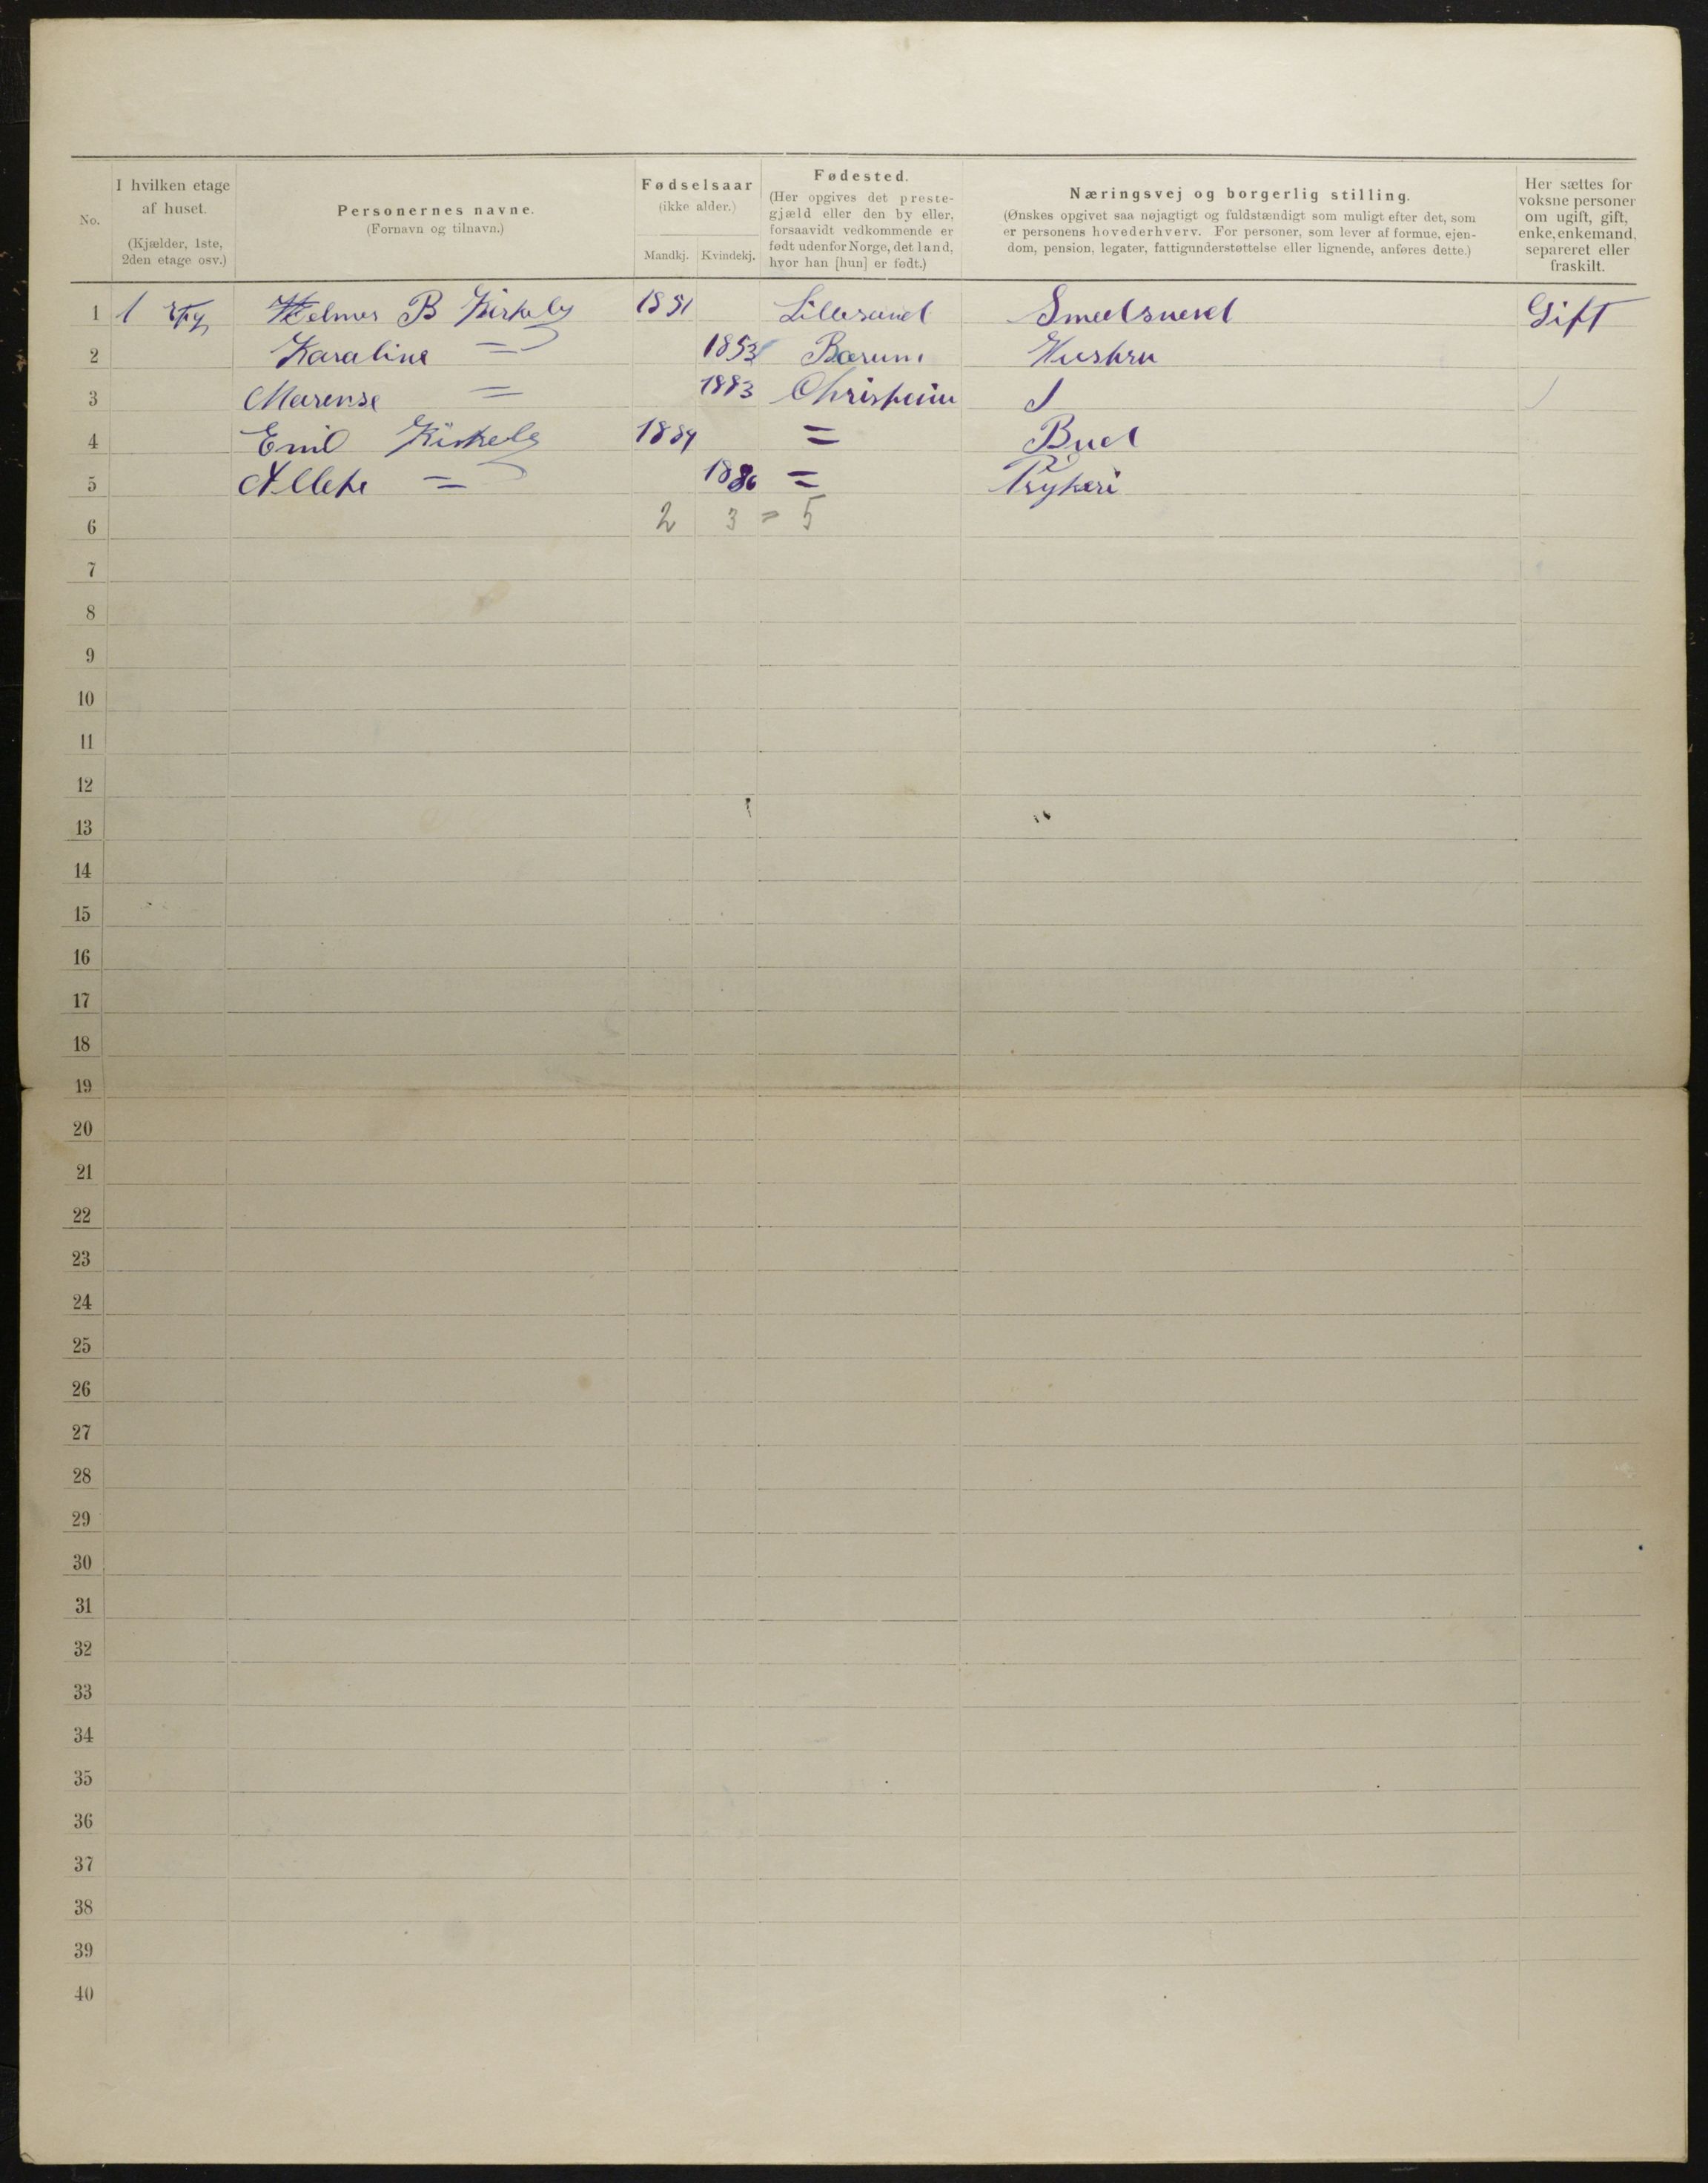 No.
I hvilken etage
af huset.
(Kjælder, 1ste,
2den etage osv.)
Personernes navne.
(Fornavn og tilnavn.)
Fødselsaar
(ikke alder.)
Mandkj. Kvindekj.
Fødested.
(Her opgives det preste-
gjæld eller den by eller,
forsaavidt vedkommende er
født udenfor Norge, det land,
hvor han [hun] er født.)
Næringsvej og borgerlig stilling.
(Ønskes opgivet saa nøjagtigt og fuldstændigt som muligt efter det, som
er personens hovederhverv. For personer, som lever af formue, ejen-
dom, pension, legater, fattigunderstøttelse eller lignende, anføres dette.)
Her sættes for
voksne personer
om ugift, gift,
enke, enkemand,
separeret eller
fraskilt.
1 1 Helmer B Kirkeby 1851 Lillesand Smedsvend Gift
2 Karaline = 1853 Bærum Huskru
3 Marense = 1883
4 Emil Kirkeby 1884 = Bud
5 = 1886 =
6 2 3 = 5
7
8
9
10
11
12
13
14
15
16
17
18
19
20
21
22
23
24
25
26
27
28
29
30
31
32
33
34
35
36
37
38
39
40